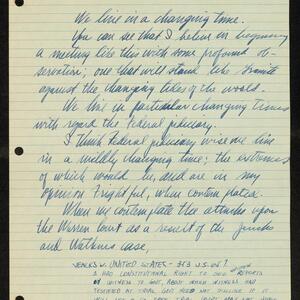 We live in a changing time.
You can see that I believe in beginning
a meeting like this with some profound ob-
servation; one that will stand like granite
against the changing tides of the world.
We live in particular changing times
with regard the Federal judiciary.
I think Federal judiciary wise we live
in a wildly changing time; the extremes
of which would be, and are in my
opinion frightful, when contemplated.
When we contemplate the attacks upon
the Warren Court as a result of the Jencks
and Watkins case,
JENCKS v. UNITED STATES - 353 U.S. 657
Δ HAD CONSTITUTIONAL RIGHT TO REPORTS
OF WITNESS TO GOVT. ABOUT WHICH WITNESS HAD
TESTIFIED AT TRIAL. GOVT. NEED NOT DISCLOSE IT